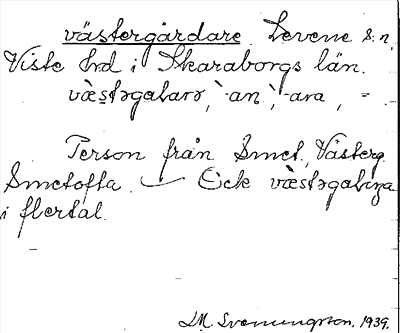 västergårdare. Levene s:n,
Viste hrd i Skaraborgs län.
væstəgalarə, -an, -ara, =
Person från Smet., Västerg.
Smetofta. — Eck væstəgaliŋa
i flertal.
M. Svenungsson. 1939.